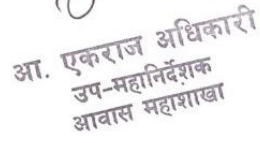 आ. एकराज अधिकारी
उप-महानिर्देशक
आवास महाशाखा